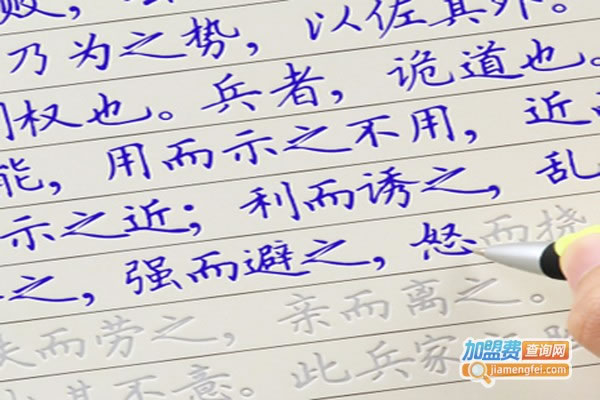 乃为之势，以佐其外。
权也。兵者，诡道也。
能，用而示之不用，近
示之近；利而诱之，乱
之，强而避之，怒而挠
而劳之，亲而离之。
其不意。此兵家
加盟费查询网
jiamengfei.com